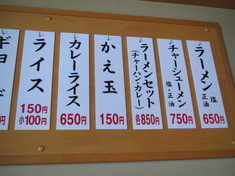 ラーメン 塩 正油
650円
チャーシューメン 塩・正油
750円
ラーメンセット
(チャーハン・カレー)
各850円
かえ玉
150円
カレーライス
650円
ライス
150円
小100円
ギョ